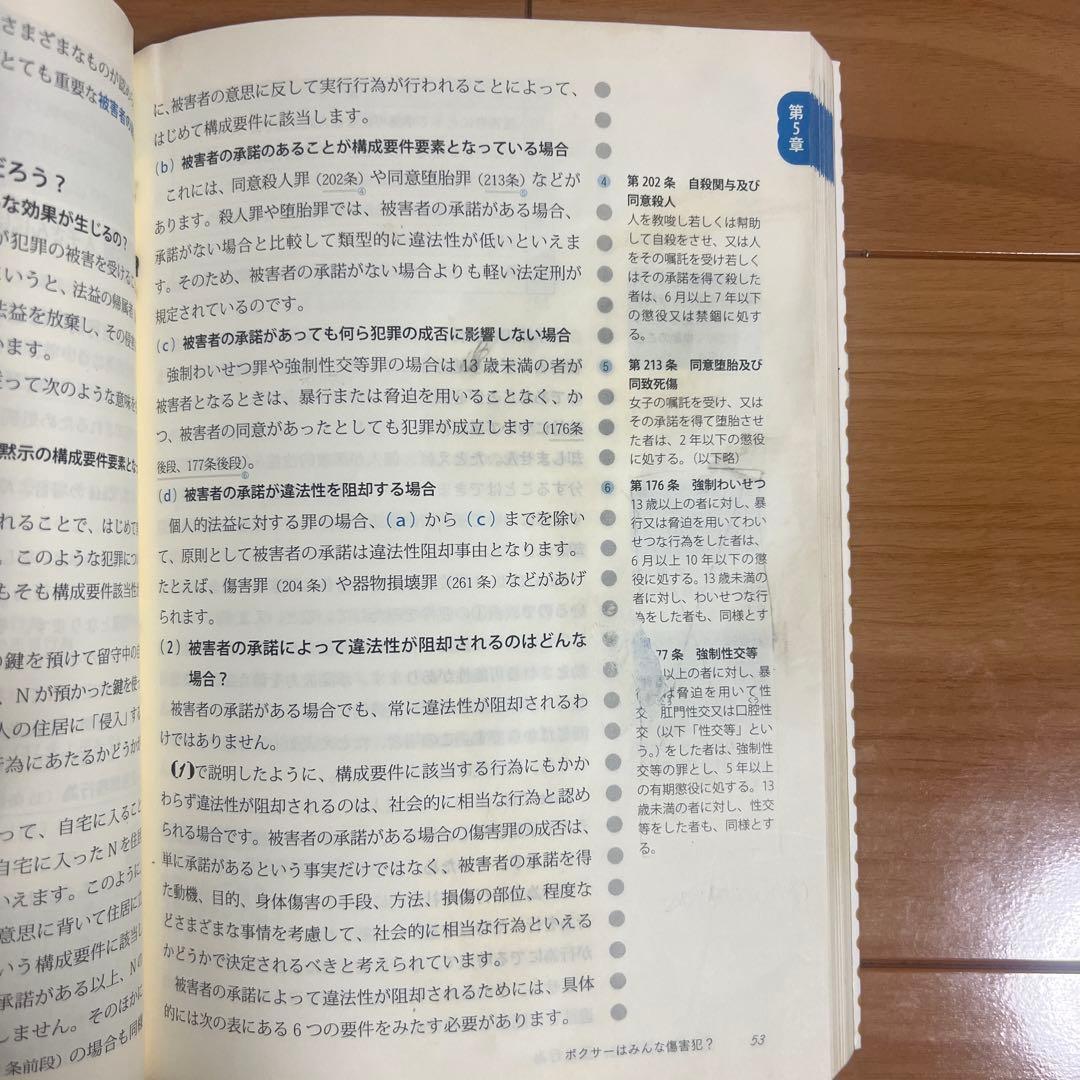 さまざまなものが認め
とても重要な被害者の
だろう？
な効果が生じるの？
が犯罪の被害を受ける
いうと、法益の帰属者
法益を放棄し、その侵害
います。
従って次のような意味を
黙示の構成要件要素とな
れることで、はじめて
。このような犯罪につ
もそも構成要件該当性
の鍵を預けて留守中の
、Nが預かった鍵を使っ
人の住居に「侵入」す
行為にあたるかどうかが
って、自宅に入ること
自宅に入ったNを住居
いえます。このように
意思に背いて住居に立
いう構成要件に該当し
承諾がある以上、Nの
しません。そのほかに
条前段）の場合も同様
に、被害者の意思に反して実行行為が行われることによって、
はじめて構成要件に該当します。
(b) 被害者の承諾のあることが構成要件要素となっている場合
これには、同意殺人罪（202条）や同意堕胎罪（213条）などが
④ ⑤
あります。殺人罪や堕胎罪では、被害者の承諾がある場合、
承諾がない場合と比較して類型的に違法性が低いといえま
す。そのため、被害者の承諾がない場合よりも軽い法定刑が
規定されているのです。
(c) 被害者の承諾があっても何ら犯罪の成否に影響しない場合
強制わいせつ罪や強制性交等罪の場合は13歳未満の者が
被害者となるときは、暴行または脅迫を用いることなく、か
つ、被害者の同意があったとしても犯罪が成立します（176条
後段、177条後段）。
⑥
(d) 被害者の承諾が違法性を阻却する場合
個人的法益に対する罪の場合、(a) から (c) までを除い
て、原則として被害者の承諾は違法性阻却事由となります。
たとえば、傷害罪（204条）や器物損壊罪（261条）などがあげ
られます。
(2) 被害者の承諾によって違法性が阻却されるのはどんな
場合？
被害者の承諾がある場合でも、常に違法性が阻却されるわ
けではありません。
(1)で説明したように、構成要件に該当する行為にもかか
わらず違法性が阻却されるのは、社会的に相当な行為と認め
られる場合です。被害者の承諾がある場合の傷害罪の成否は、
単に承諾があるという事実だけではなく、被害者の承諾を得
た動機、目的、身体傷害の手段、方法、損傷の部位、程度な
どさまざまな事情を考慮して、社会的に相当な行為といえる
かどうかで決定されるべきと考えられています。
被害者の承諾によって違法性が阻却されるためには、具体
的には次の表にある6つの要件をみたす必要があります。
第5章
④ 第202条 自殺関与及び
同意殺人
人を教唆し若しくは幇助
して自殺をさせ、又は人
をその嘱託を受け若しく
はその承諾を得て殺した
者は、6月以上7年以下
の懲役又は禁錮に処す
る。
⑤ 第213条 同意堕胎及び
同致死傷
女子の嘱託を受け、又は
その承諾を得て堕胎させ
た者は、2年以下の懲役
に処する。（以下略）
⑥ 第176条 強制わいせつ
13歳以上の者に対し、暴
行又は脅迫を用いてわい
せつな行為をした者は、
6月以上10年以下の懲
役に処する。13歳未満の
者に対し、わいせつな行
為をした者も、同様とす
77条 強制性交等
以上の者に対し、暴
は脅迫を用いて性
交 肛門性交又は口腔性
交（以下「性交等」とい
う。）をした者は、強制性
交等の罪とし、5年以上
の有期懲役に処する。13
歳未満の者に対し、性交
等をした者も、同様とす
る。
ボクサーはみんな傷害犯？ 53